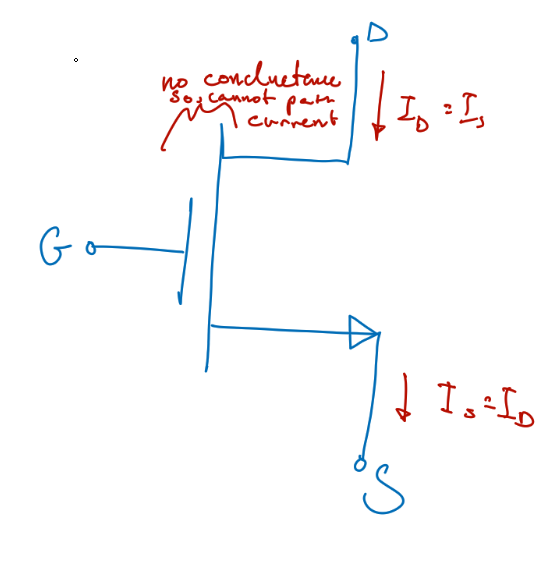 D
no conductance
so, cannot path
current
I_D = I_s
G
I_s = I_D
S